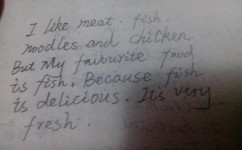 I like meat. fish.
noodles and chicken
But My faibourite food
is fish. Because fish
is delicious. Its very
fresh.